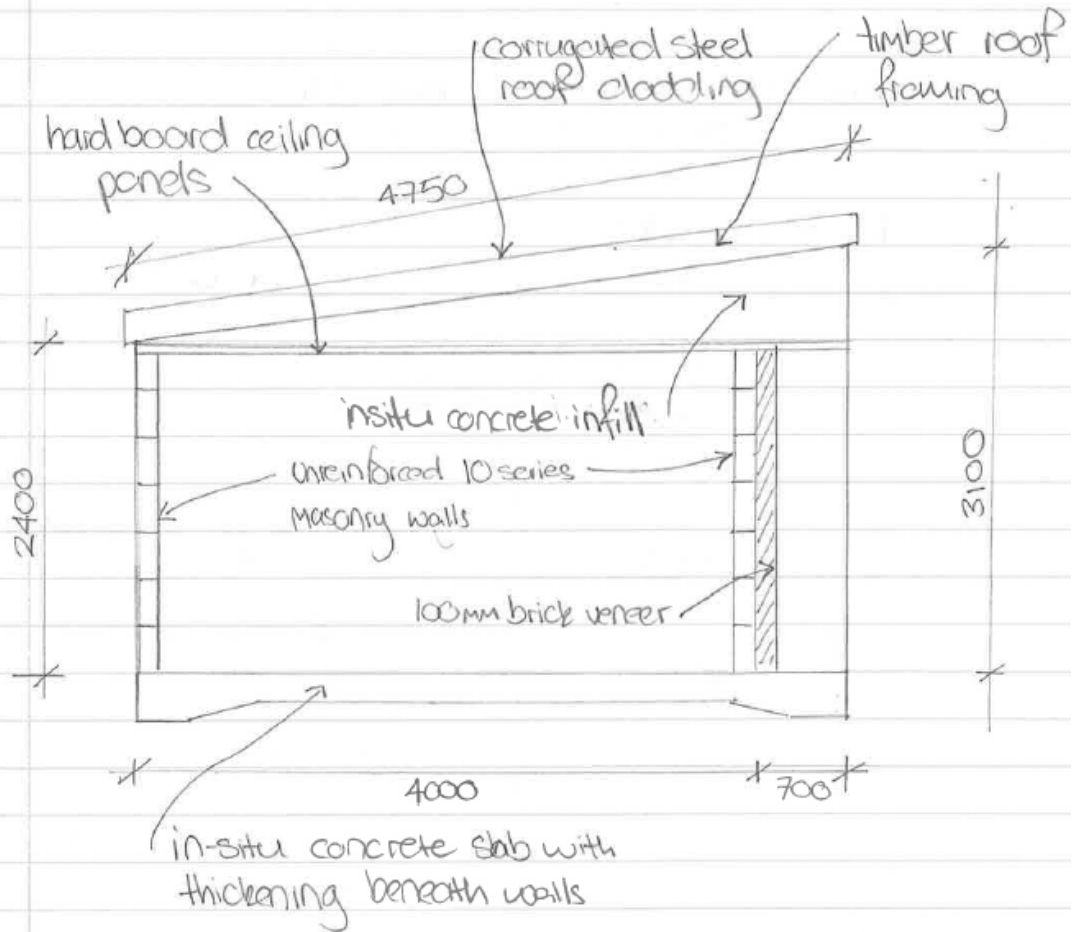 corrugated steel
roof cladding
timber roof
framing
hardboard ceiling
panels
4750
insitu concrete infill
unreinforced 10 series
masonry walls
2400
3100
100mm brick veneer
4000
700
in-situ concrete slab with
thickening beneath walls